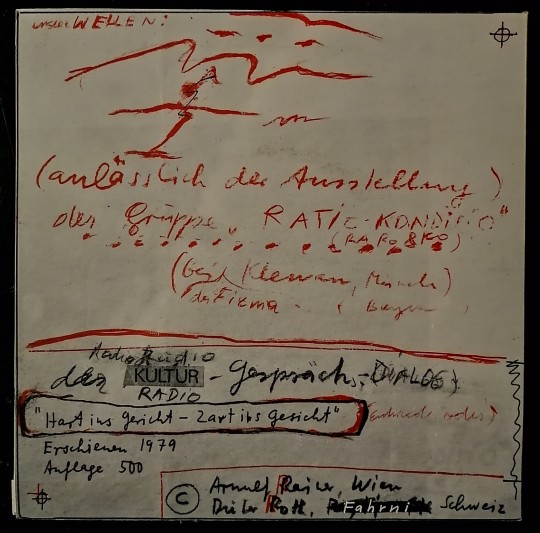 unsere WELLEN:
(anlässlich der Ausstellung)
der Gruppe "RATIO-KONDITIO"
(bei Klewan, Münch)
der Firma
Radio
der KULTUR - Gespräch, DIALOG)
RADIO
"Hart ins gericht - Zart ins gesicht"
Erschienen 1979
Auflage 500
© Arnulf Rainer, Wien
Dieter Roth, Fahrni Schweiz